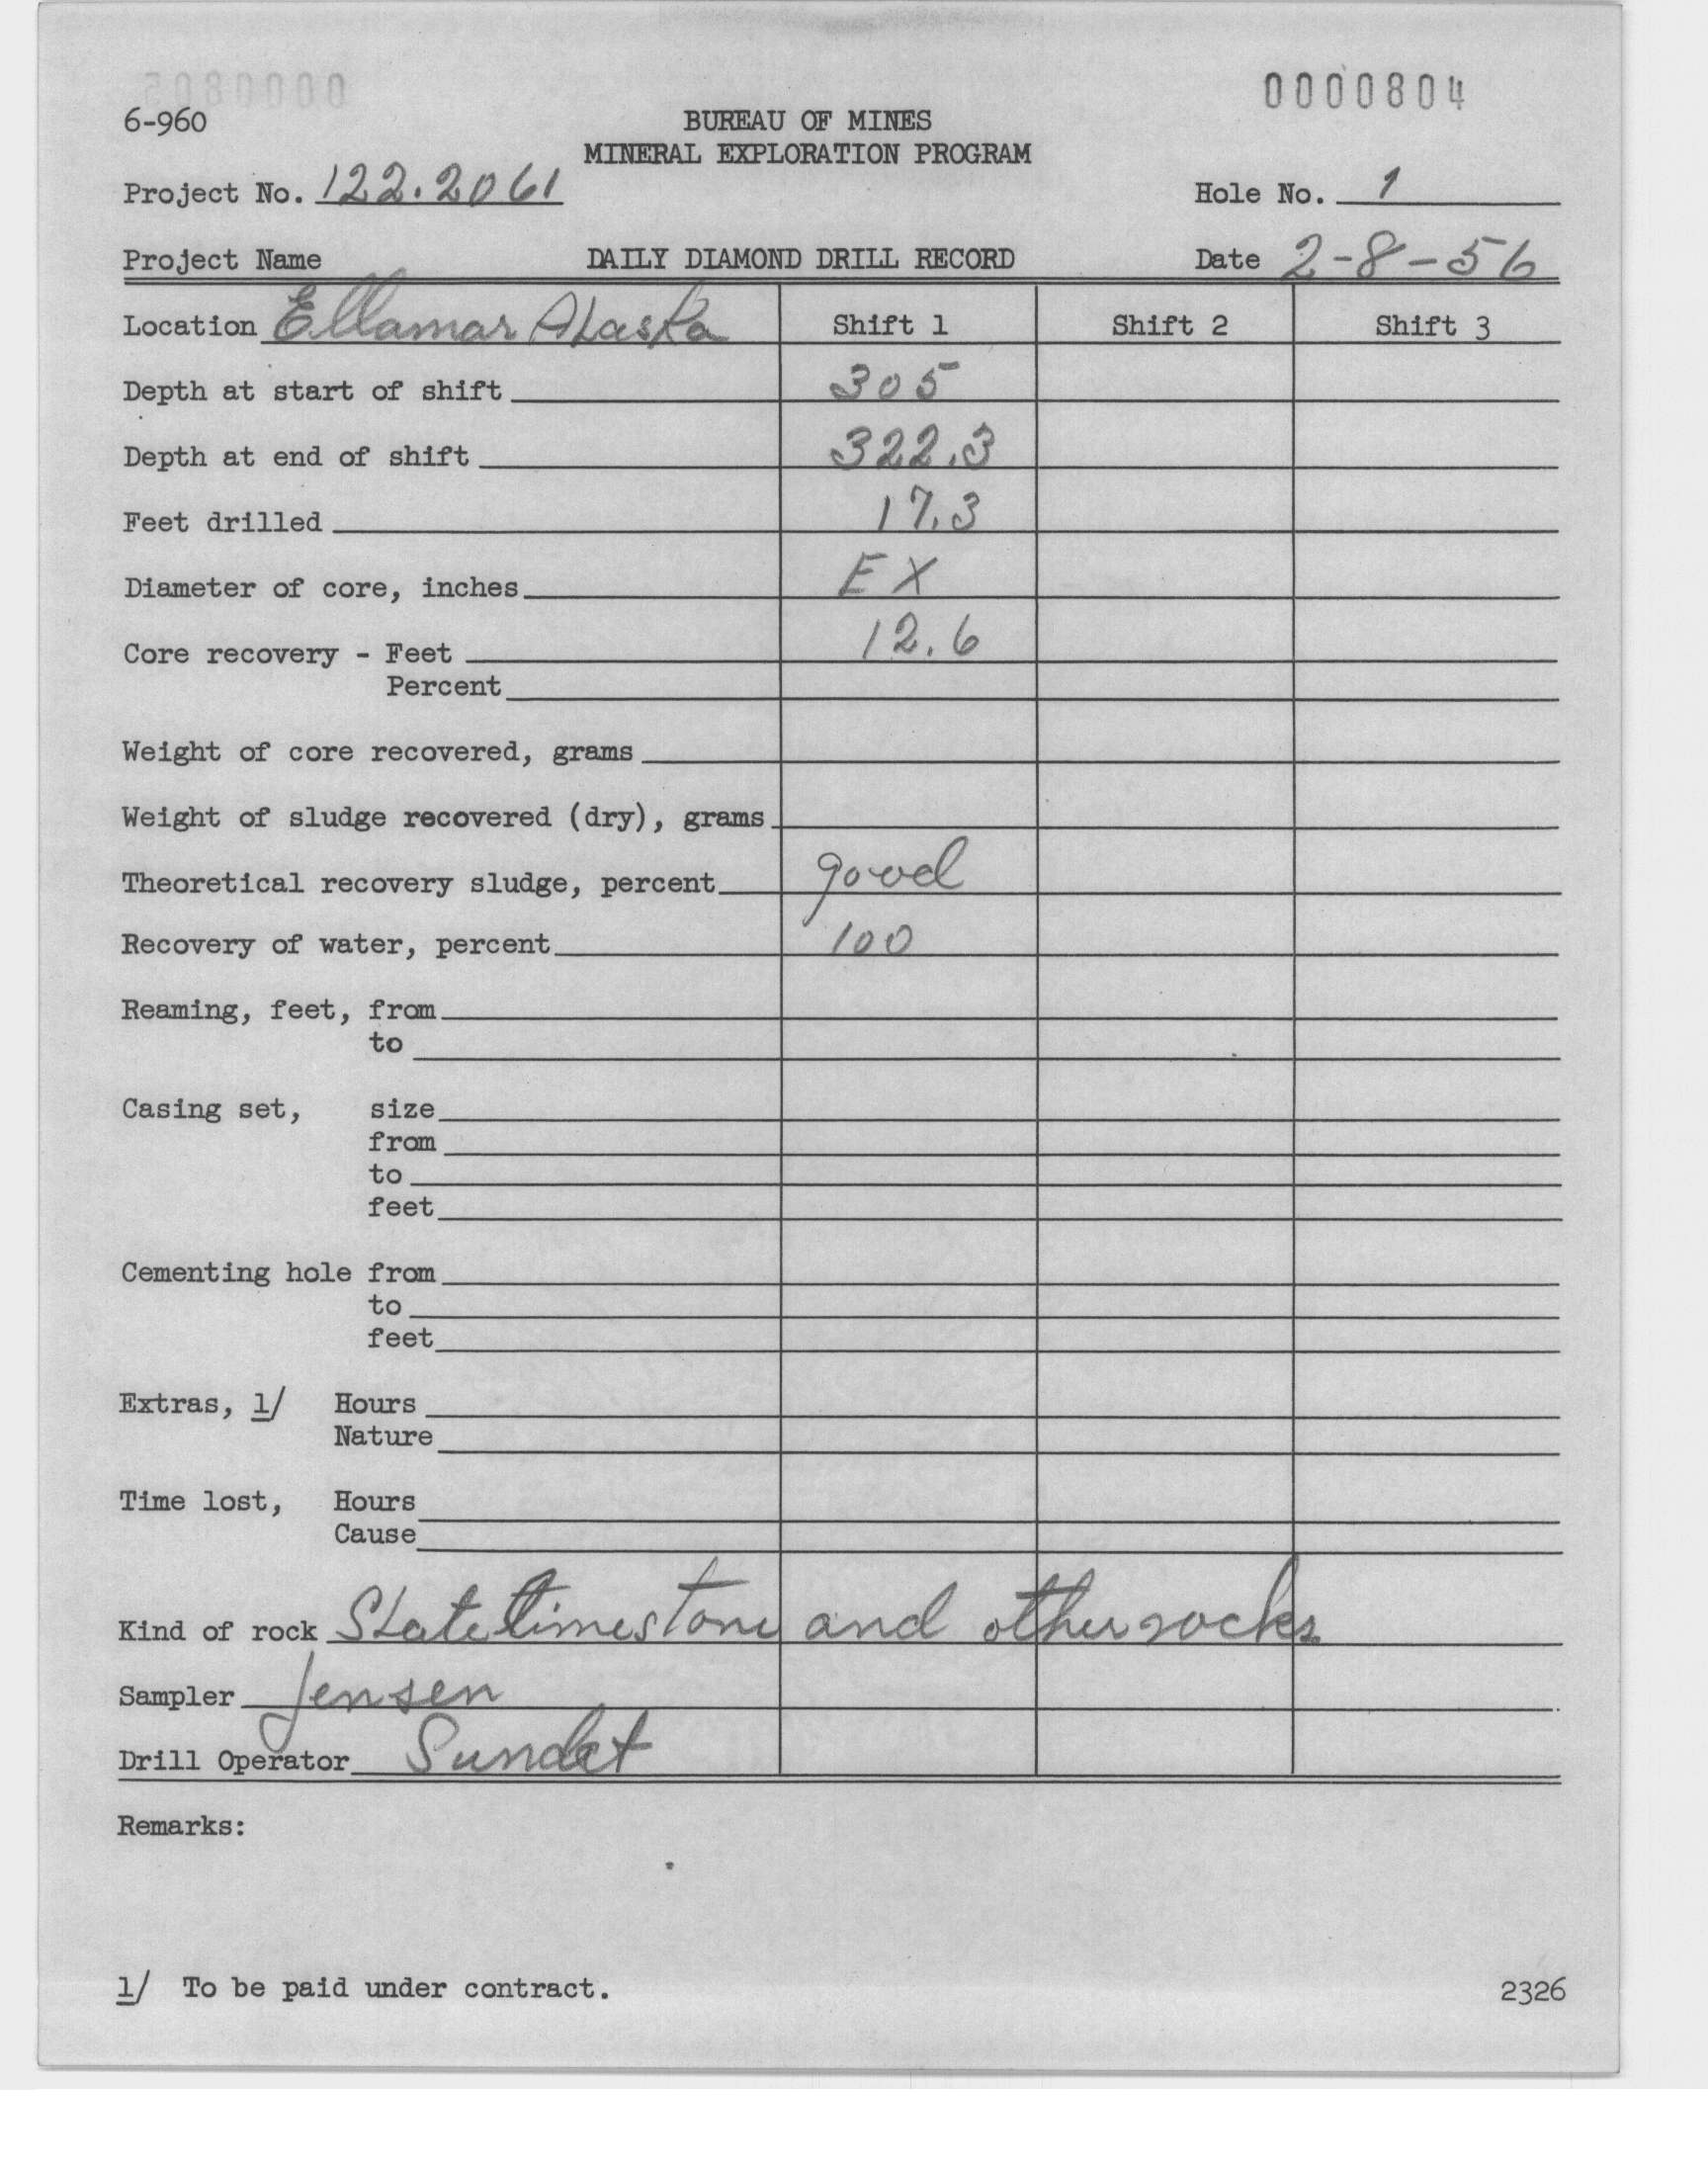 0000804
6-960
BUREAU OF MINES
MINERAL EXPLORATION PROGRAM
Project No. 122.2061
Hole No. 1
Project Name
DAILY DIAMOND DRILL RECORD
Date 2-8-56
Location Ellamar Alaska Shift 1 Shift 2 Shift 3
Depth at start of shift 305
Depth at end of shift 322.3
Feet drilled 17.3
Diameter of core, inches EX
Core recovery - Feet 12.6
Percent
Weight of core recovered, grams
Weight of sludge recovered (dry), grams
Theoretical recovery sludge, percent good
Recovery of water, percent 100
Reaming, feet, from
to
Casing set, size
from
to
feet
Cementing hole from
to
feet
Extras, 1/ Hours
Nature
Time lost, Hours
Cause
Kind of rock Slate limestone and other rocks
Sampler Jensen
Drill Operator Sundet
Remarks:
1/ To be paid under contract.
2326